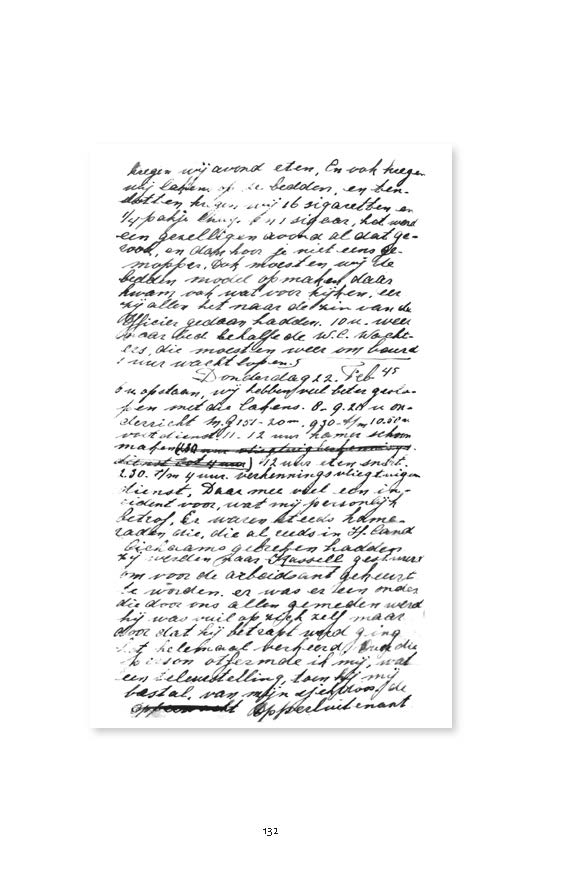 kregen wij avond eten, En ook kregen
wij lakens op de bedden, en ben-
kregen wij 16 sigaretten en
1/4 pakje en 1 sigaar, het werd
een gezelligen avond al dat ge-
rook, en dan hoor je niet eens ge-
mopper. Ook moesten wij de
bedden model opmaken, daar
kwam ook wat voor kijken, eer
zij allen het naar de zin van de
Officier gedaan hadden. 10 u. weer
naar bed behalfe de W.C. Wacht-
ers, die moesten weer om beurd
1 uur wacht lopen.
Donderdag 22. Feb 45
6 u. opstaan, wij hebben veel beter gesla-
pen met die lakens. 8. 9.20 u on-
derricht M.G 151-20m. 930 t/m 10.50u
11. 12 uur kamer schoon
maken
12 uur eten
2.30. t/m 4 uur. verkenningsvliegtuigen
dienst, Daar mee viel een in-
cident voor, wat mij persoonlijk
betrof, Er waren steeds kame-
raden die, die al reeds in H.land
lichaams gebreken hadden
zij werden naar Kassell gestuurd
om voor de arbeidsant gekeurt
te worden. er was er een onder
die door ons allen gemeden werd
hij was vuil op zich zelf maar
door dat hij betrapt werd ging
het helemaal verkeerd. die
persoon otfermde ik mij, wat
een teleurstelling, toen hij mij
bestal. van mijn de
Opperluitenant
132